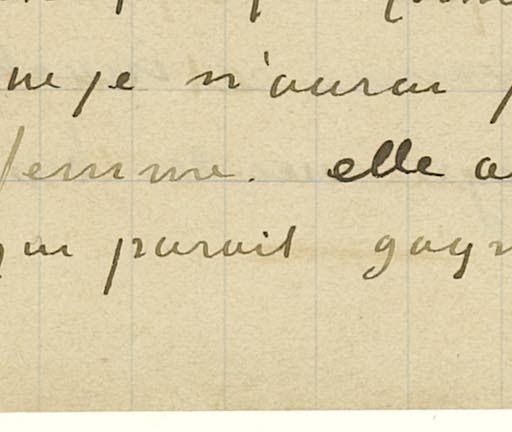 ue je n'aurai p
femme. elle a
qui parait gagn